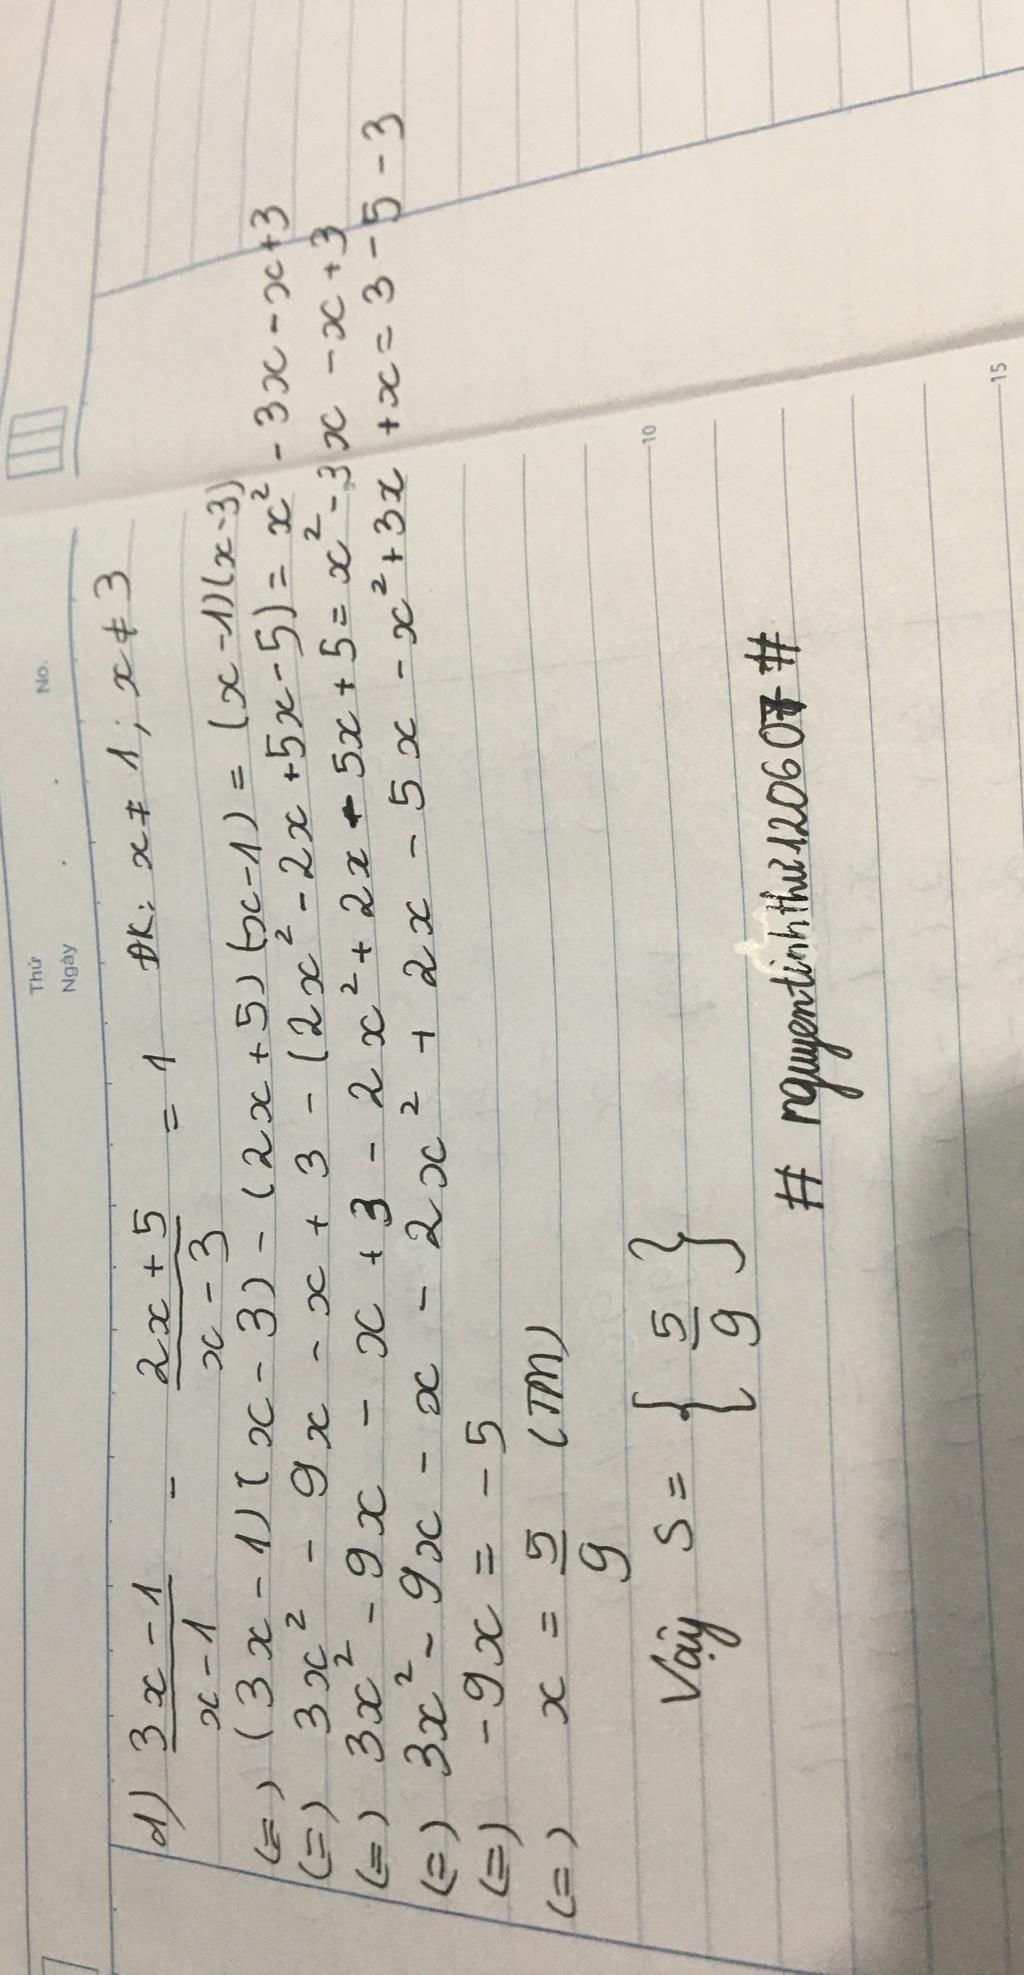 Thứ
Ngày
No.
d) 3x - 1 / x - 1 - 2x + 5 / x - 3 = 1 ĐK: x ≠ 1 ; x ≠ 3
(=) (3x - 1)(x - 3) - (2x + 5)(x - 1) = (x - 1)(x - 3)
(=) 3x² - 9x - x + 3 - (2x² - 2x + 5x - 5) = x² - 3x - x + 3
(=) 3x² - 9x - x + 3 - 2x² + 2x - 5x + 5 = x² - 3x - x + 3
(=) 3x² - 9x - x - 2x² + 2x - 5x - x² + 3x + x = 3 - 5 - 3
(=) -9x = -5
(=) x = 5/9 (TM)
10
Vậy S = { 5/9 }
# nguyentinhthu120607 #
15